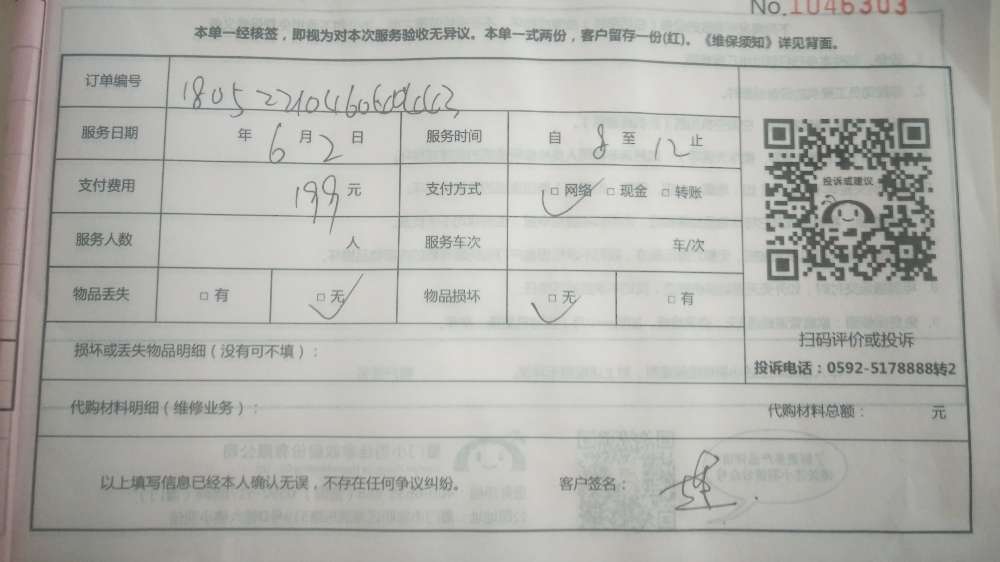 No.1046303
本单一经核签，即视为对本次服务验收无异议。本单一式两份，客户留存一份(红)。《维保须知》详见背面。
订单编号
服务日期 年 6 月 2 日 服务时间 自 8 至 12 止
支付费用 199 元 支付方式 □ 网络 □ 现金 □ 转账
服务人数 人 服务车次 车/次
物品丢失 □ 有 □ 无 物品损坏 □ 无 □ 有
投诉或建议
扫码评价或投诉
投诉电话：0592-5178888转2
损坏或丢失物品明细（没有可不填）：
代购材料明细（维修业务）： 代购材料总额： 元
以上填写信息已经本人确认无误，不存在任何争议纠纷。 客户签名：